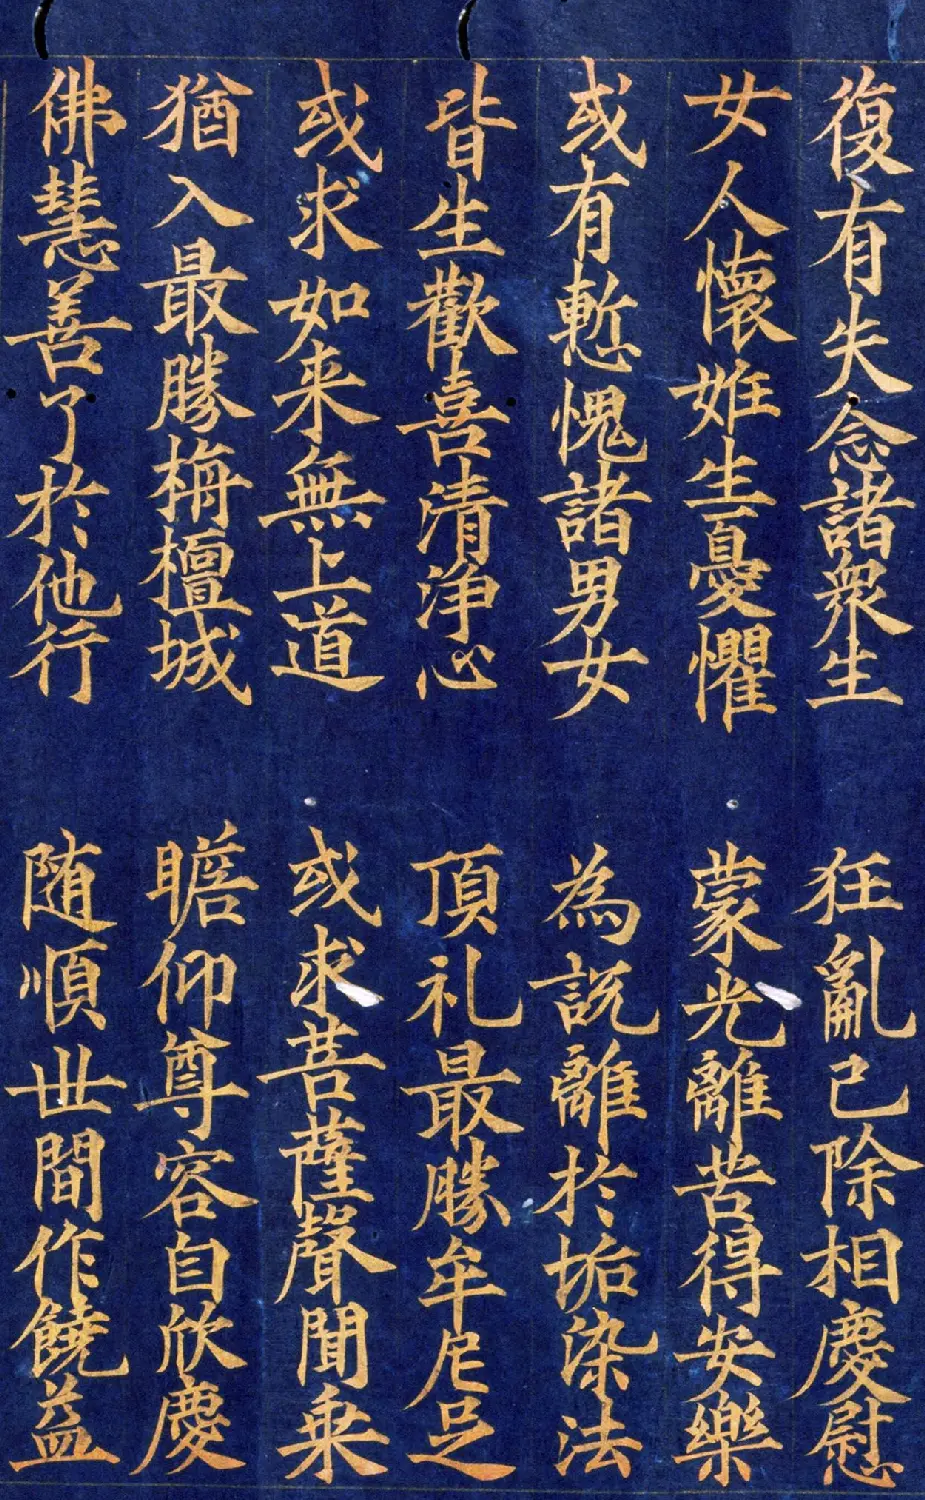 復有失念諸衆生　狂亂已除相慶慰
女人懷姙生憂懼　蒙光離苦得安樂
或有慙愧諸男女　為説離於垢染法
皆生歡喜清淨心　頂礼最勝牟尼足
或求如来無上道　或求菩薩聲聞乗
猶入最勝栴檀城　瞻仰尊容自欣慶
佛慧善了於他行　随順世間作饒益